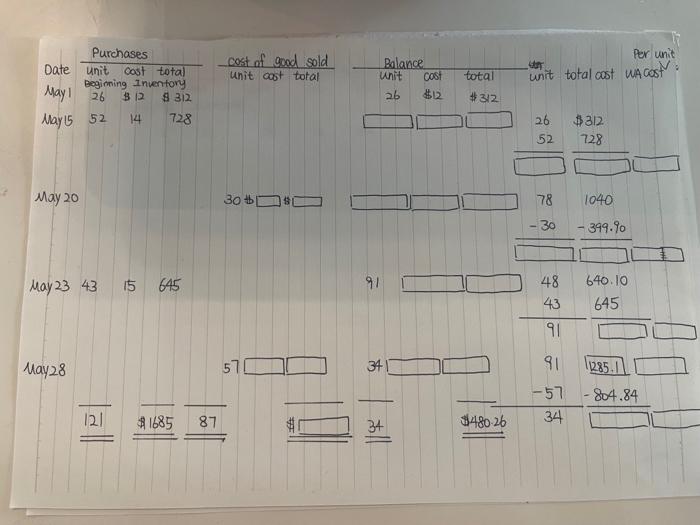 Purchases cost of good sold Balance Per unit
Date unit cost total unit cost total unit cost total unit total cost WA cost
Beginning Inventory
May 1 26 $12 $312 26 $12 $312
May 15 52 14 728 26 $312
52 728
May 20 30 $ $ 78 1040
- 30 - 399.90
$
May 23 43 15 645 91 48 640.10
43 645
91
May 28 57 34 91 1285.1
- 57 - 804.84
121 $1685 87 $ 34 $480.26 34